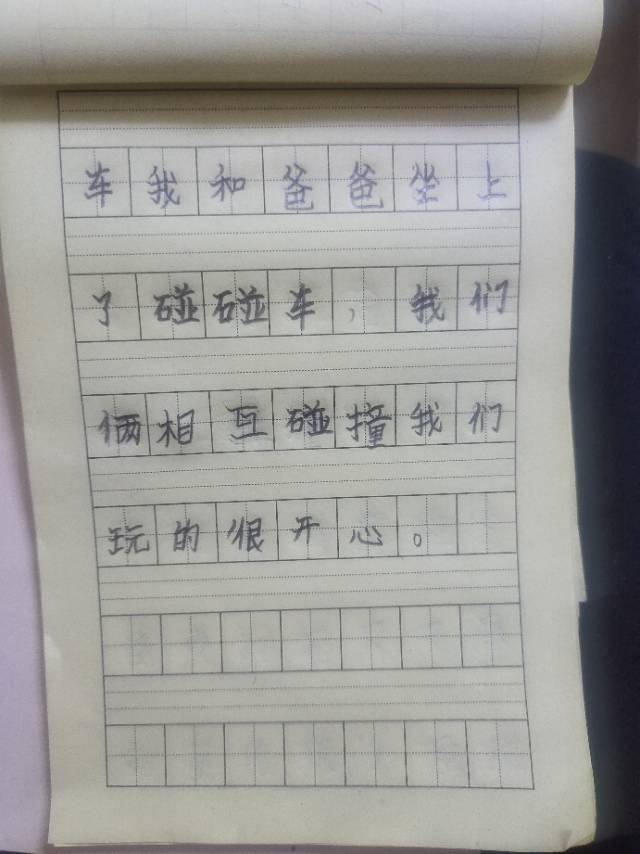 车我和爸爸坐上
了碰碰车，我们
俩相互碰撞我们
玩的很开心。